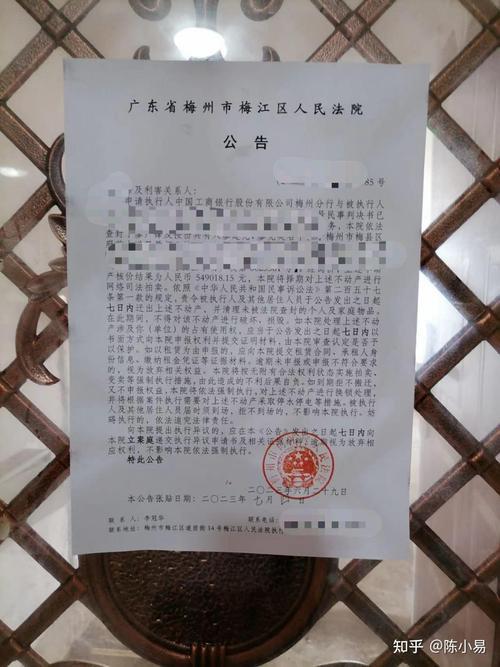 广东省梅州市梅江区人民法院
公告
85号
及利害关系人：
申请执行人中国工商银行股份有限公司梅州分行与被执行人
号民事判决书已
务，本院依法
查封了
梅州市梅县区
产核价结果为人民币 549018.15 元，本院将择期对上述不动产进行
网络司法拍卖。依照《中华人民共和国民事诉讼法》第二百五十七
条第一款的规定，责令被执行人及其他居住人员于公告发出之日起
七日内迁出上述不动产，并清理未被法院查封的个人及家庭物品。
在此期间，不得对该不动产进行破坏、损毁。如本院处理上述不动
产涉及你（单位）的占有使用权，应当于公告发出之日起七日内以
书面方式向本院申报权利并提交证明材料，由本院审查认定是否予
以保护。如以租赁为由申报的，应向本院提交租赁合同、承租人身
份信息、缴纳租金凭证等证据材料。逾期未申报或申报不符合要求的，
视为放弃相关权益。本院将按无附有合法权利状态实施拍卖、
变卖等强制执行措施，由此造成的不利后果自负。如到期拒不搬迁，
又不申报权益，本院将依法强制执行，对上述不动产进行换锁处理，
并将根据案件执行需要对上述不动产采取停水停电等措施。被执行
人及其他居住人员届时须到场，拒不到场的，不影响本院执行。妨
碍执行的，依法追究法律责任。
向本院提出执行异议的，应在本《公告》发出之日起七日内向
本院立案庭递交执行异议申请书及相关证据材料，逾期视为放弃相
应权利，不影响本院依法强制执行。
特此公告
二〇二三年六月二十九日
本公告张贴日期：二〇二三年 七月 日
联系人：李冠华 联系电话：
联系地址：梅州市梅江区道前街14号梅江区人民法院执行
知乎 @陈小易